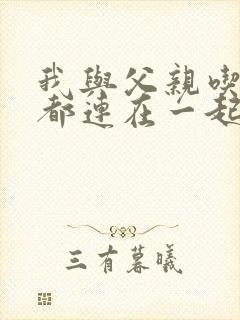 我與父親喫
都連在一起
三有暮曦